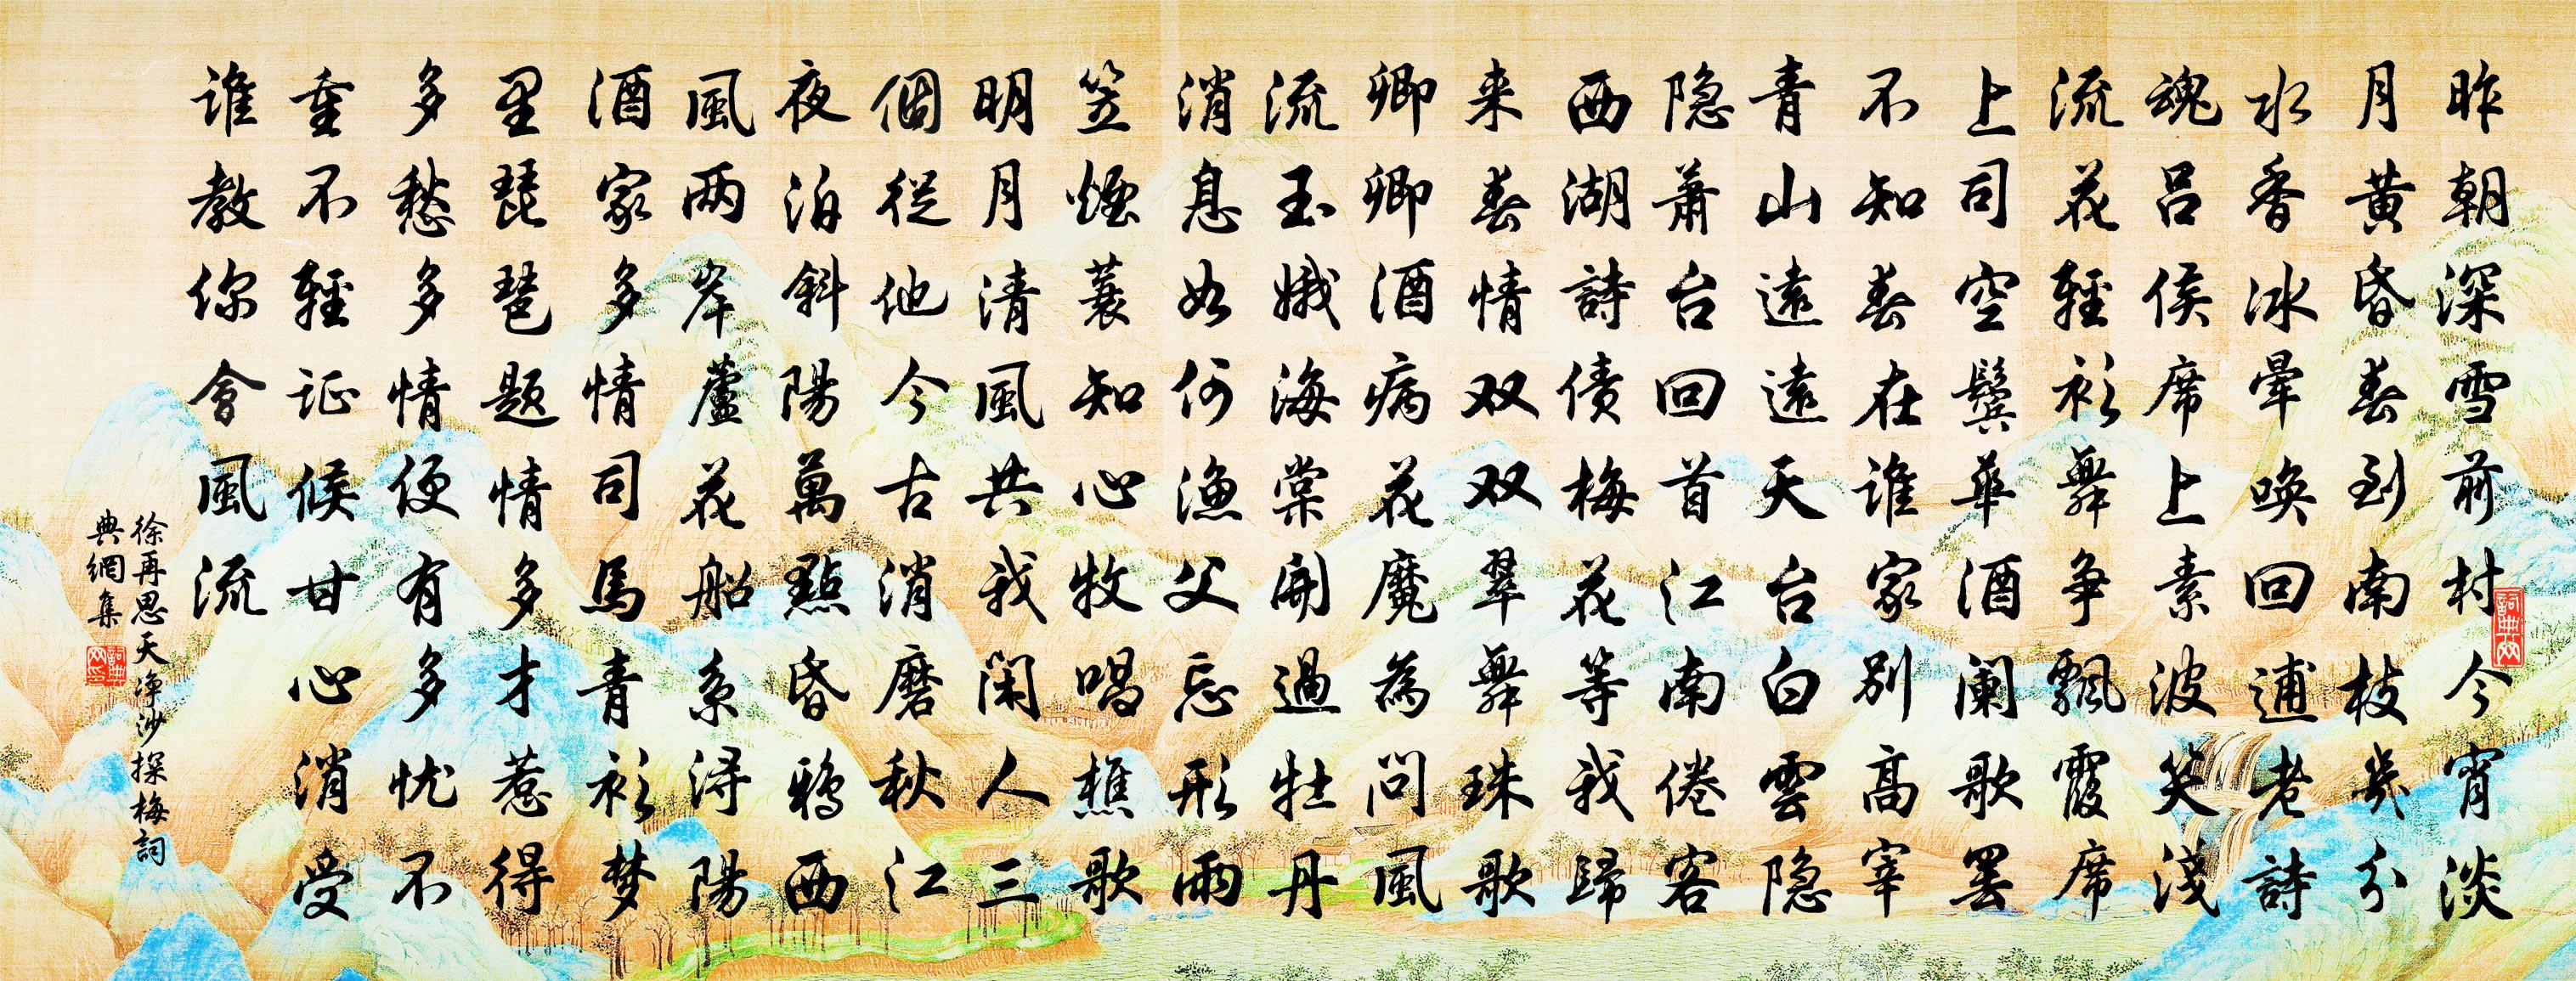 昨朝深雪前村今宵淡
月黄昏春到南枝幾分
水香冰暈唤回逋老詩
魂吕侯席上素波笑淺
流花輕衫舞争飄霞席
上司空鬓華酒阑歌罢
不知春在谁家别高宰
青山遠遠天台白雲隐
隐萧台回首江南倦客
西湖詩债梅花等我歸
来春情双双翠舞珠歌
卿卿酒病花魔為问風
流玉娥海棠開過牡丹
消息如何漁父忘形雨
笠煙蓑知心牧唱樵歌
明月清風共我闲人三
個從他今古消磨秋江
夜泊斜陽萬點昏鴉西
風两岸蘆花船系浔陽
酒家多情司馬青衫梦
里琵琶題情多才惹得
多愁多情便有多忧不
重不輕证候甘心消受
谁教你會風流
徐再思天净沙探梅詞
典網集
詞典
詞典网